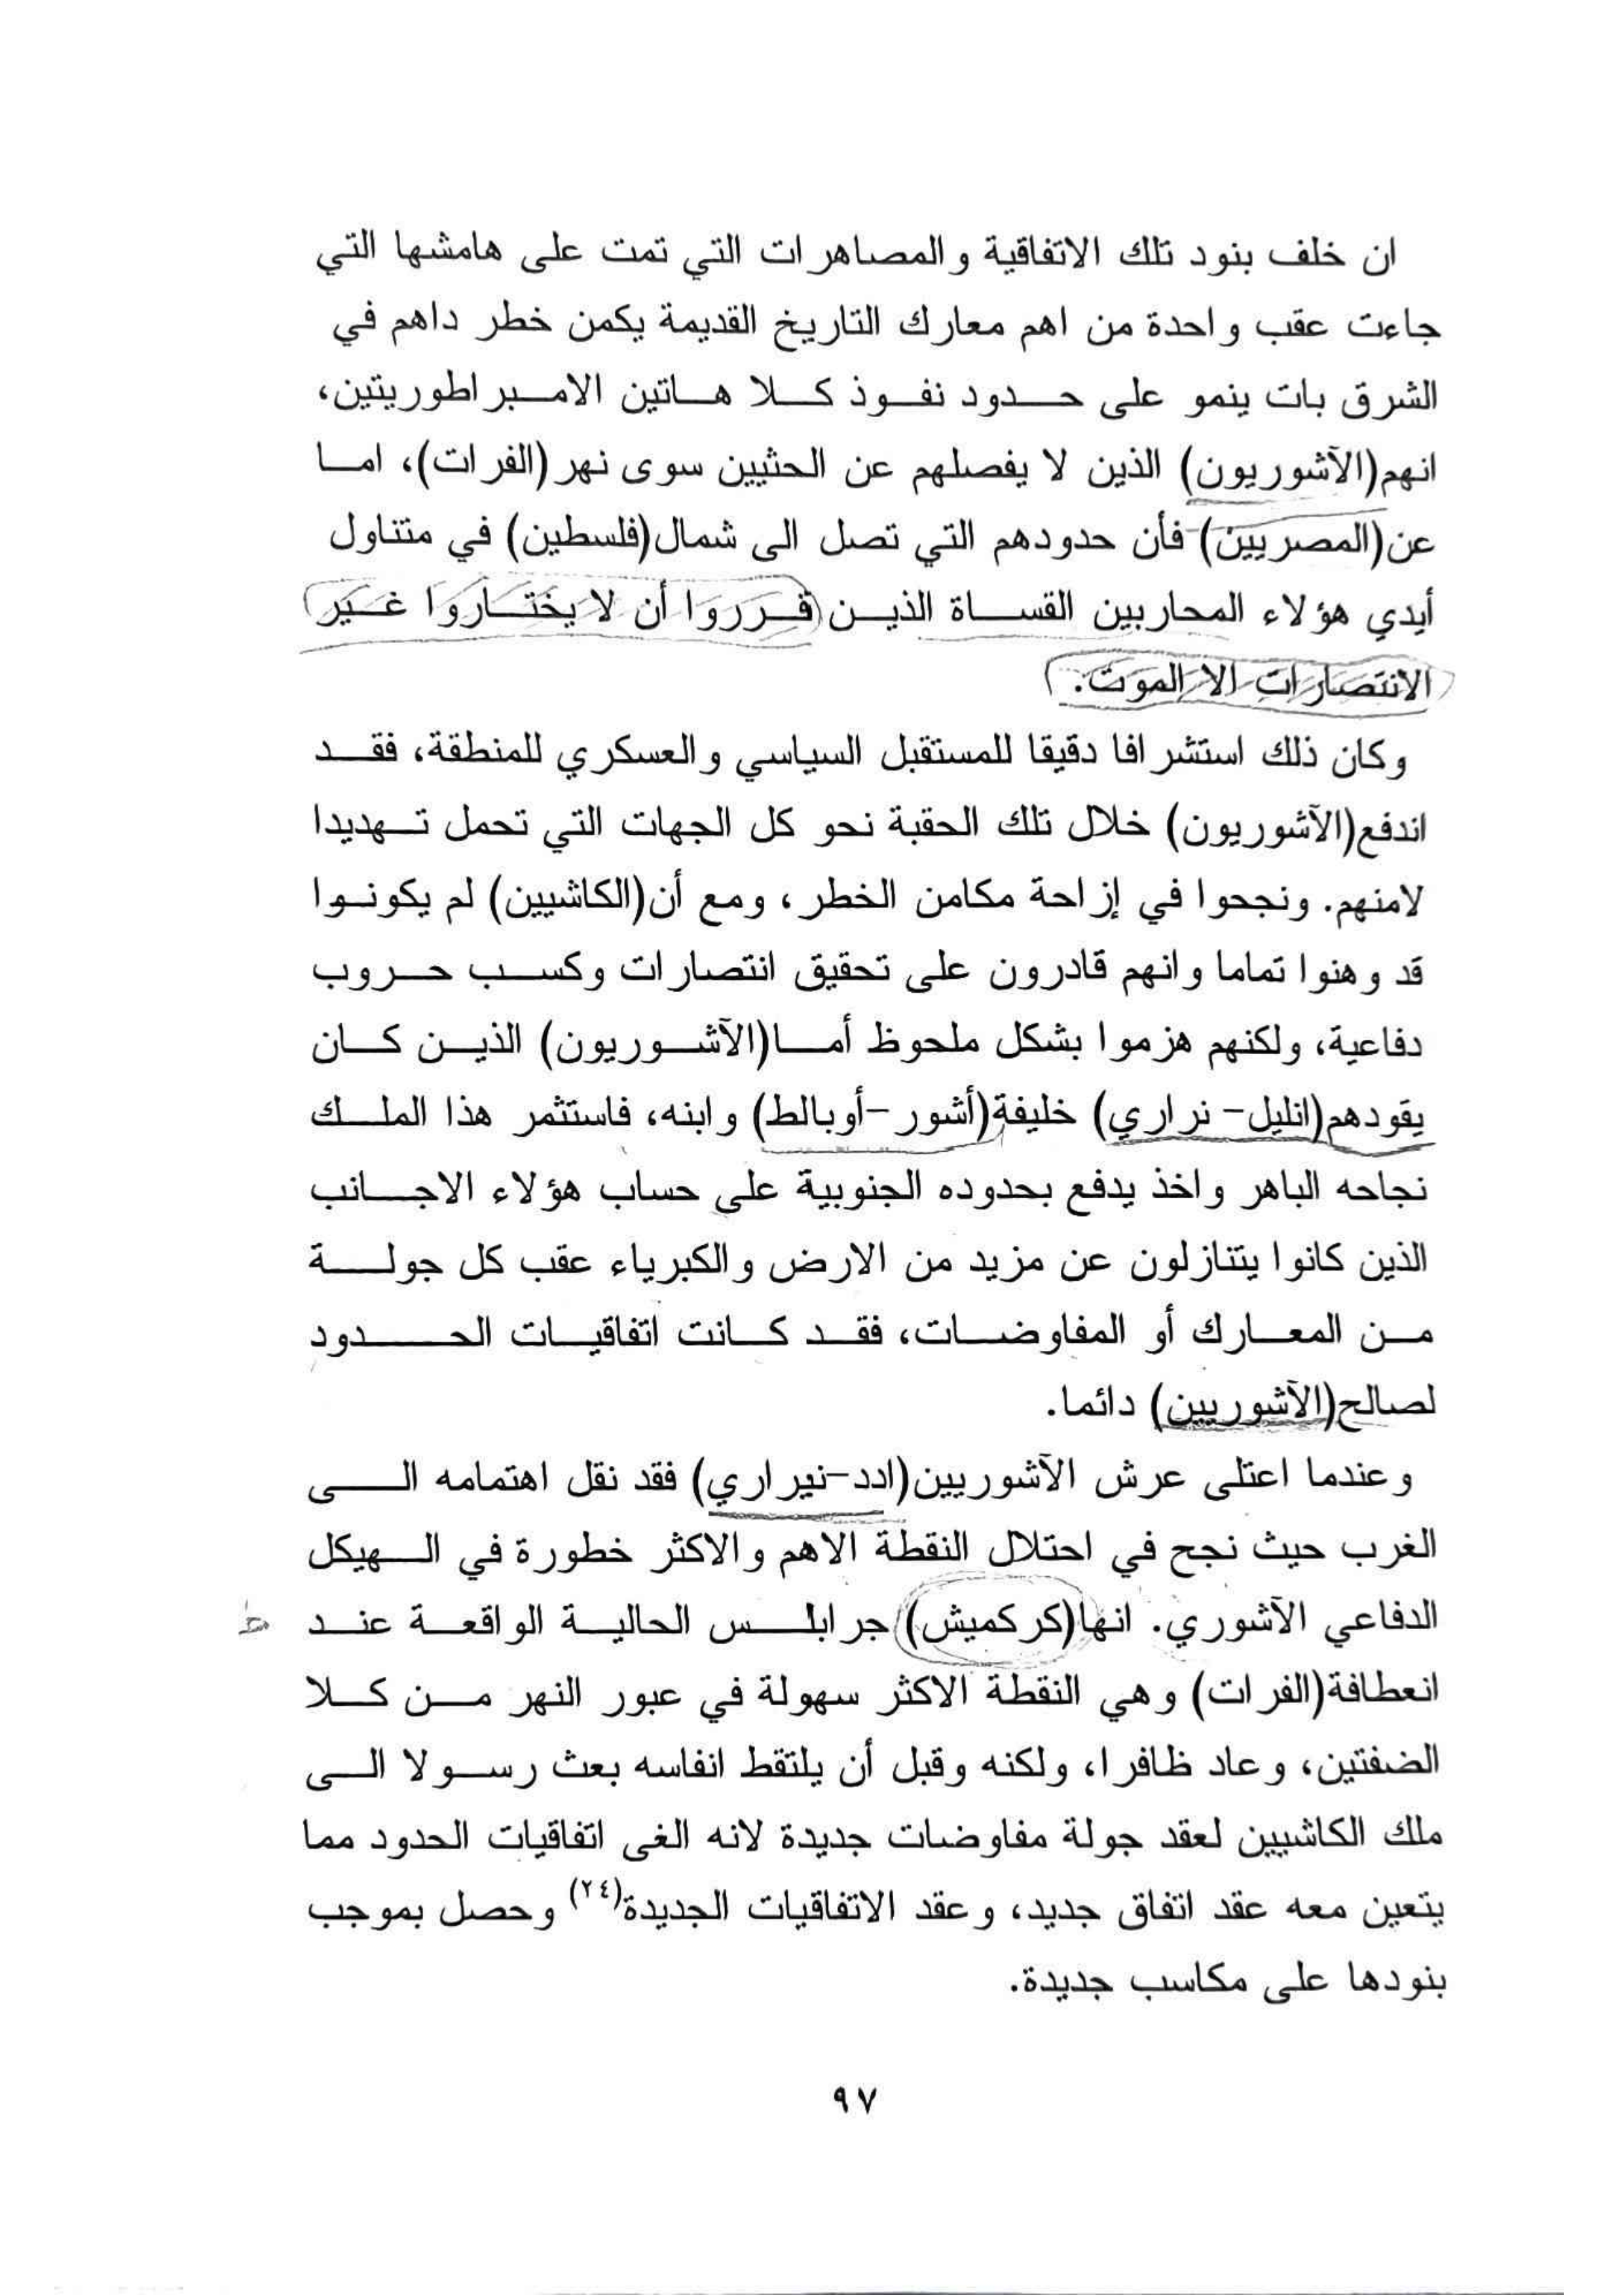 ان خلف بنود تلك الاتفاقية والمصاهرات التي تمت على هامشها التي
جاءت عقب واحدة من اهم معارك التاريخ القديمة يكمن خطر داهم في
الشرق بات ينمو على حدود نفوذ كلا هاتين الامبراطوريتين،
انهم(الآشوريون) الذين لا يفصلهم عن الحثيين سوى نهر (الفرات)، اما
عن(المصريين) فأن حدودهم التي تصل الى شمال(فلسطين) في متناول
أيدي هؤلاء المحاربين القساة الذين قرروا أن لا يختاروا غير
الانتصارات الا الموت.
وكان ذلك استشرافا دقيقا للمستقبل السياسي والعسكري للمنطقة، فقد
اندفع(الآشوريون) خلال تلك الحقبة نحو كل الجهات التي تحمل تهديدا
لامنهم. ونجحوا في إزاحة مكامن الخطر، ومع أن(الكاشيين) لم يكونوا
قد وهنوا تماما وانهم قادرون على تحقيق انتصارات وكسب حروب
دفاعية، ولكنهم هزموا بشكل ملحوظ أما(الآشوريون) الذين كان
يقودهم(انليل- نراري) خليفة(أشور -أوبالط) وابنه، فاستثمر هذا الملك
نجاحه الباهر واخذ يدفع بحدوده الجنوبية على حساب هؤلاء الاجانب
الذين كانوا يتنازلون عن مزيد من الارض والكبرياء عقب كل جولة
من المعارك أو المفاوضات، فقد كانت اتفاقيات الحدود
لصالح(الآشوريين) دائما.
وعندما اعتلى عرش الآشوريين(ادد-نيراري) فقد نقل اهتمامه الى
الغرب حيث نجح في احتلال النقطة الاهم والاكثر خطورة في الهيكل
الدفاعي الآشوري. انها(كركميش) جرابلس الحالية الواقعة عند
انعطافة(الفرات) وهي النقطة الاكثر سهولة في عبور النهر من كلا
الضفتين، وعاد ظافرا، ولكنه وقبل أن يلتقط انفاسه بعث رسولا الى
ملك الكاشيين لعقد جولة مفاوضات جديدة لانه الغى اتفاقيات الحدود مما
يتعين معه عقد اتفاق جديد، وعقد الاتفاقيات الجديدة(٢٤) وحصل بموجب
بنودها على مكاسب جديدة.
٩٧